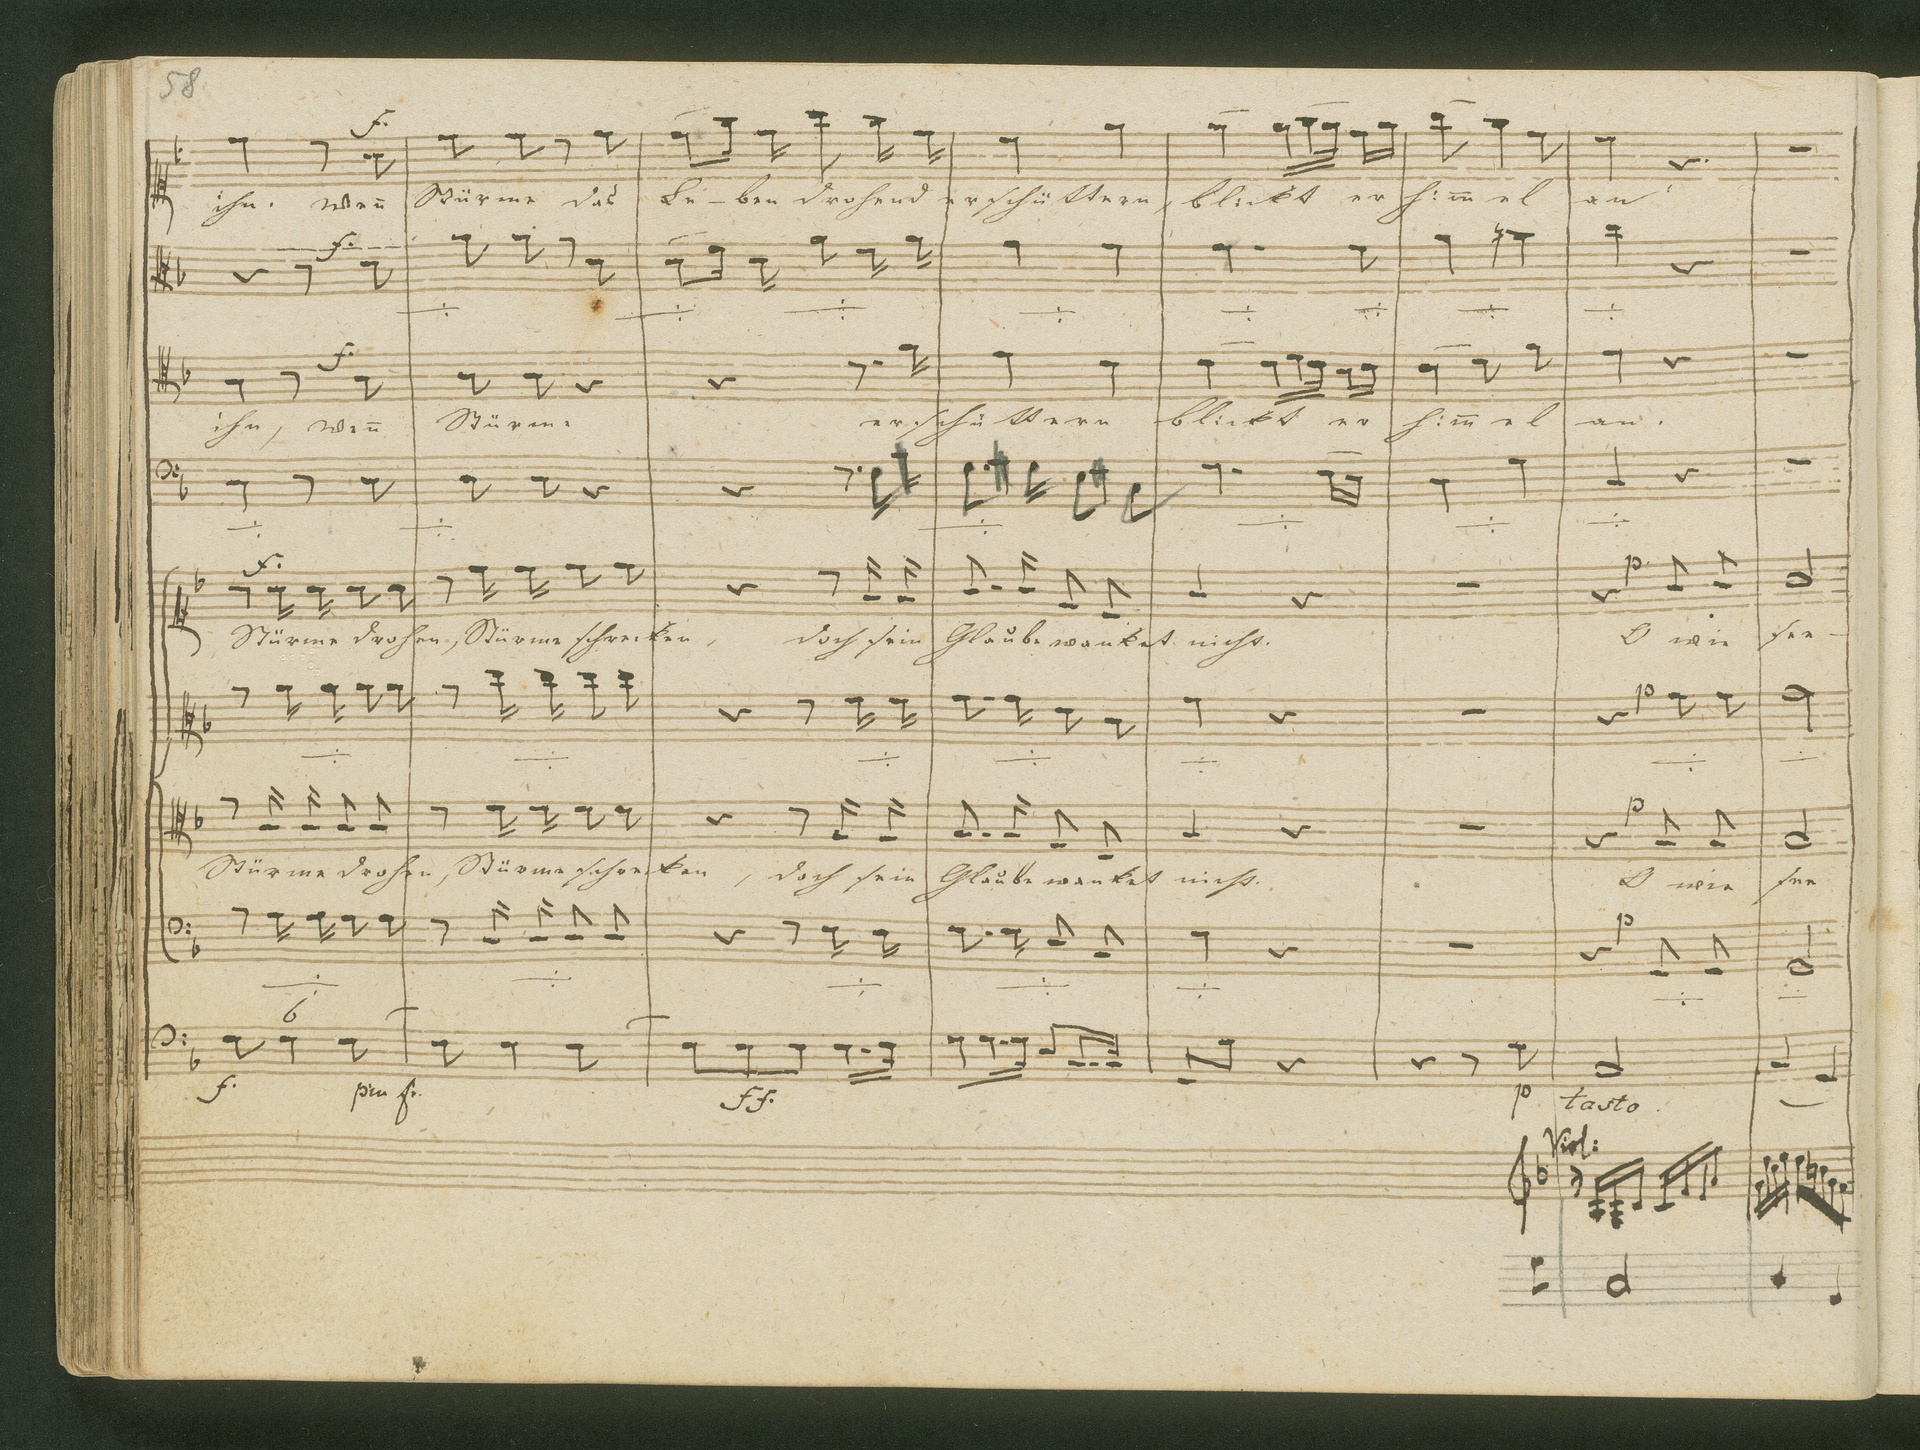 58
f.
ihn. wenn Stürme das Le-ben drohend erschüttern, blickt er himmel an
f.
f.
ihn, wenn Stürme erschüttern blickt er himmel an.
f. p
Stürme drohen, Stürme schrecken, doch sein Glaube wanket nicht. O wie see-
p
p
Stürme drohen, Stürme schrecken, doch sein Glaube wanket nicht. O wie see
p
6
f. piu f. ff. p tasto.
Viol: